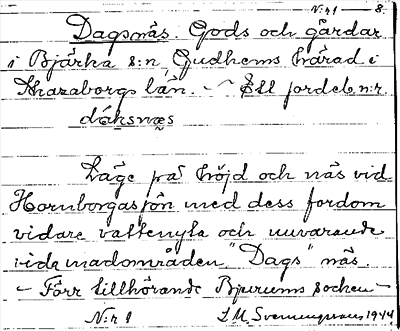 N:r 1 — 8.
Dagsnäs. Gods och gårdar
i Bjärka s:n, Gudhems härad i
Skaraborgs län. — Ett jordeb. n:r.
dáksnæs
Läge på höjd och näs vid
Hornborgasjön med dess fordom
vidare vattenyta och nuvarande
vida madområden "Dags" näs.
— Förr tillhörande Bjurums socken —
N:r 1 1944